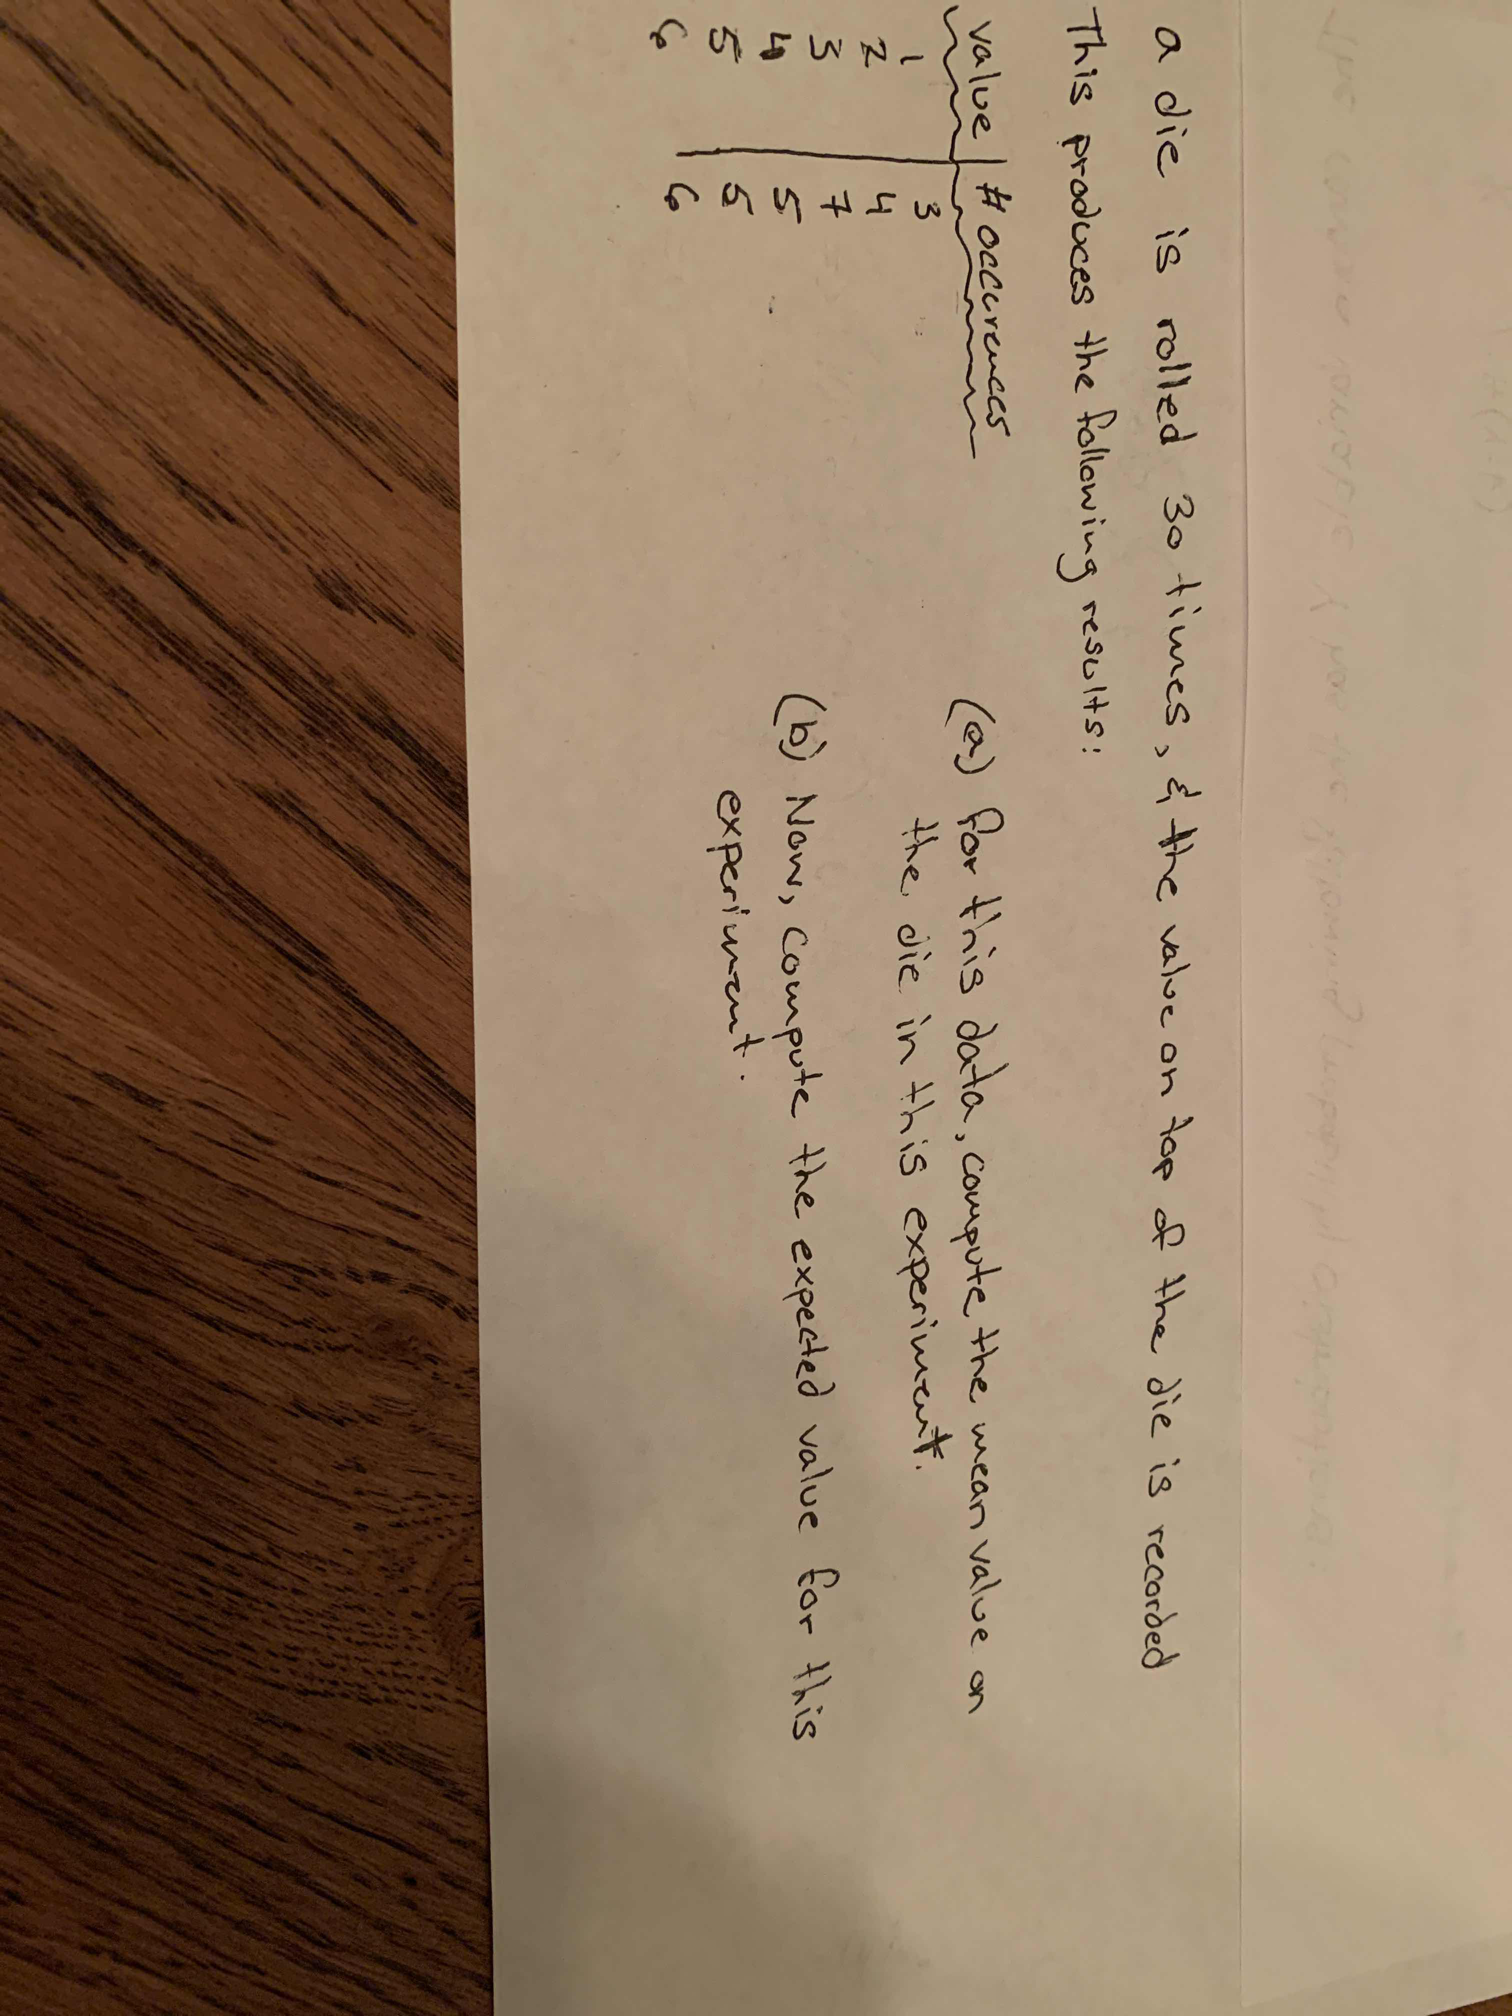 a die is rolled 30 times, & the value on top of the die is recorded
This produces the following results:
value # occurences
1 3
2 4
3 7
4 5
5 5
6 6
(a) for this data, compute the mean value on
the die in this experiment.
(b) Now, compute the expected value for this
experiment.